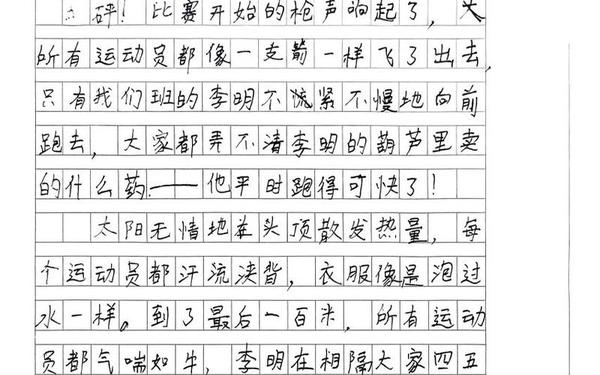 砰！比赛开始的枪声响起了，
所有运动员都像一支箭一样飞了出去，
只有我们班的李明不慌紧不慢地向前
跑去，大家都弄不清李明的葫芦里卖
的什么药——他平时跑得可快了！
太阳无情地在头顶散发热量，每
个运动员都汗流浃背，衣服像是泡过
水一样。到了最后一百米，所有运动
员都气喘如牛，李明在相隔大家四五